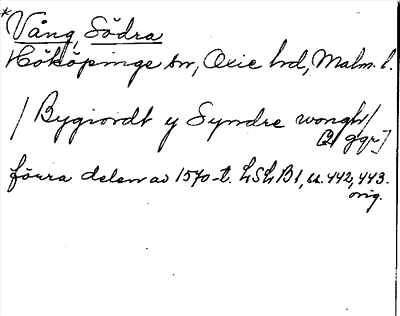 *Vång, Södra
Hököpinge sn, Oxie hd, Malm. l.
/Bygiordt y Syndre wongh/
[2 ggr]
förra delen av 1570-t. LSL B1, s. 442, 443.
orig.